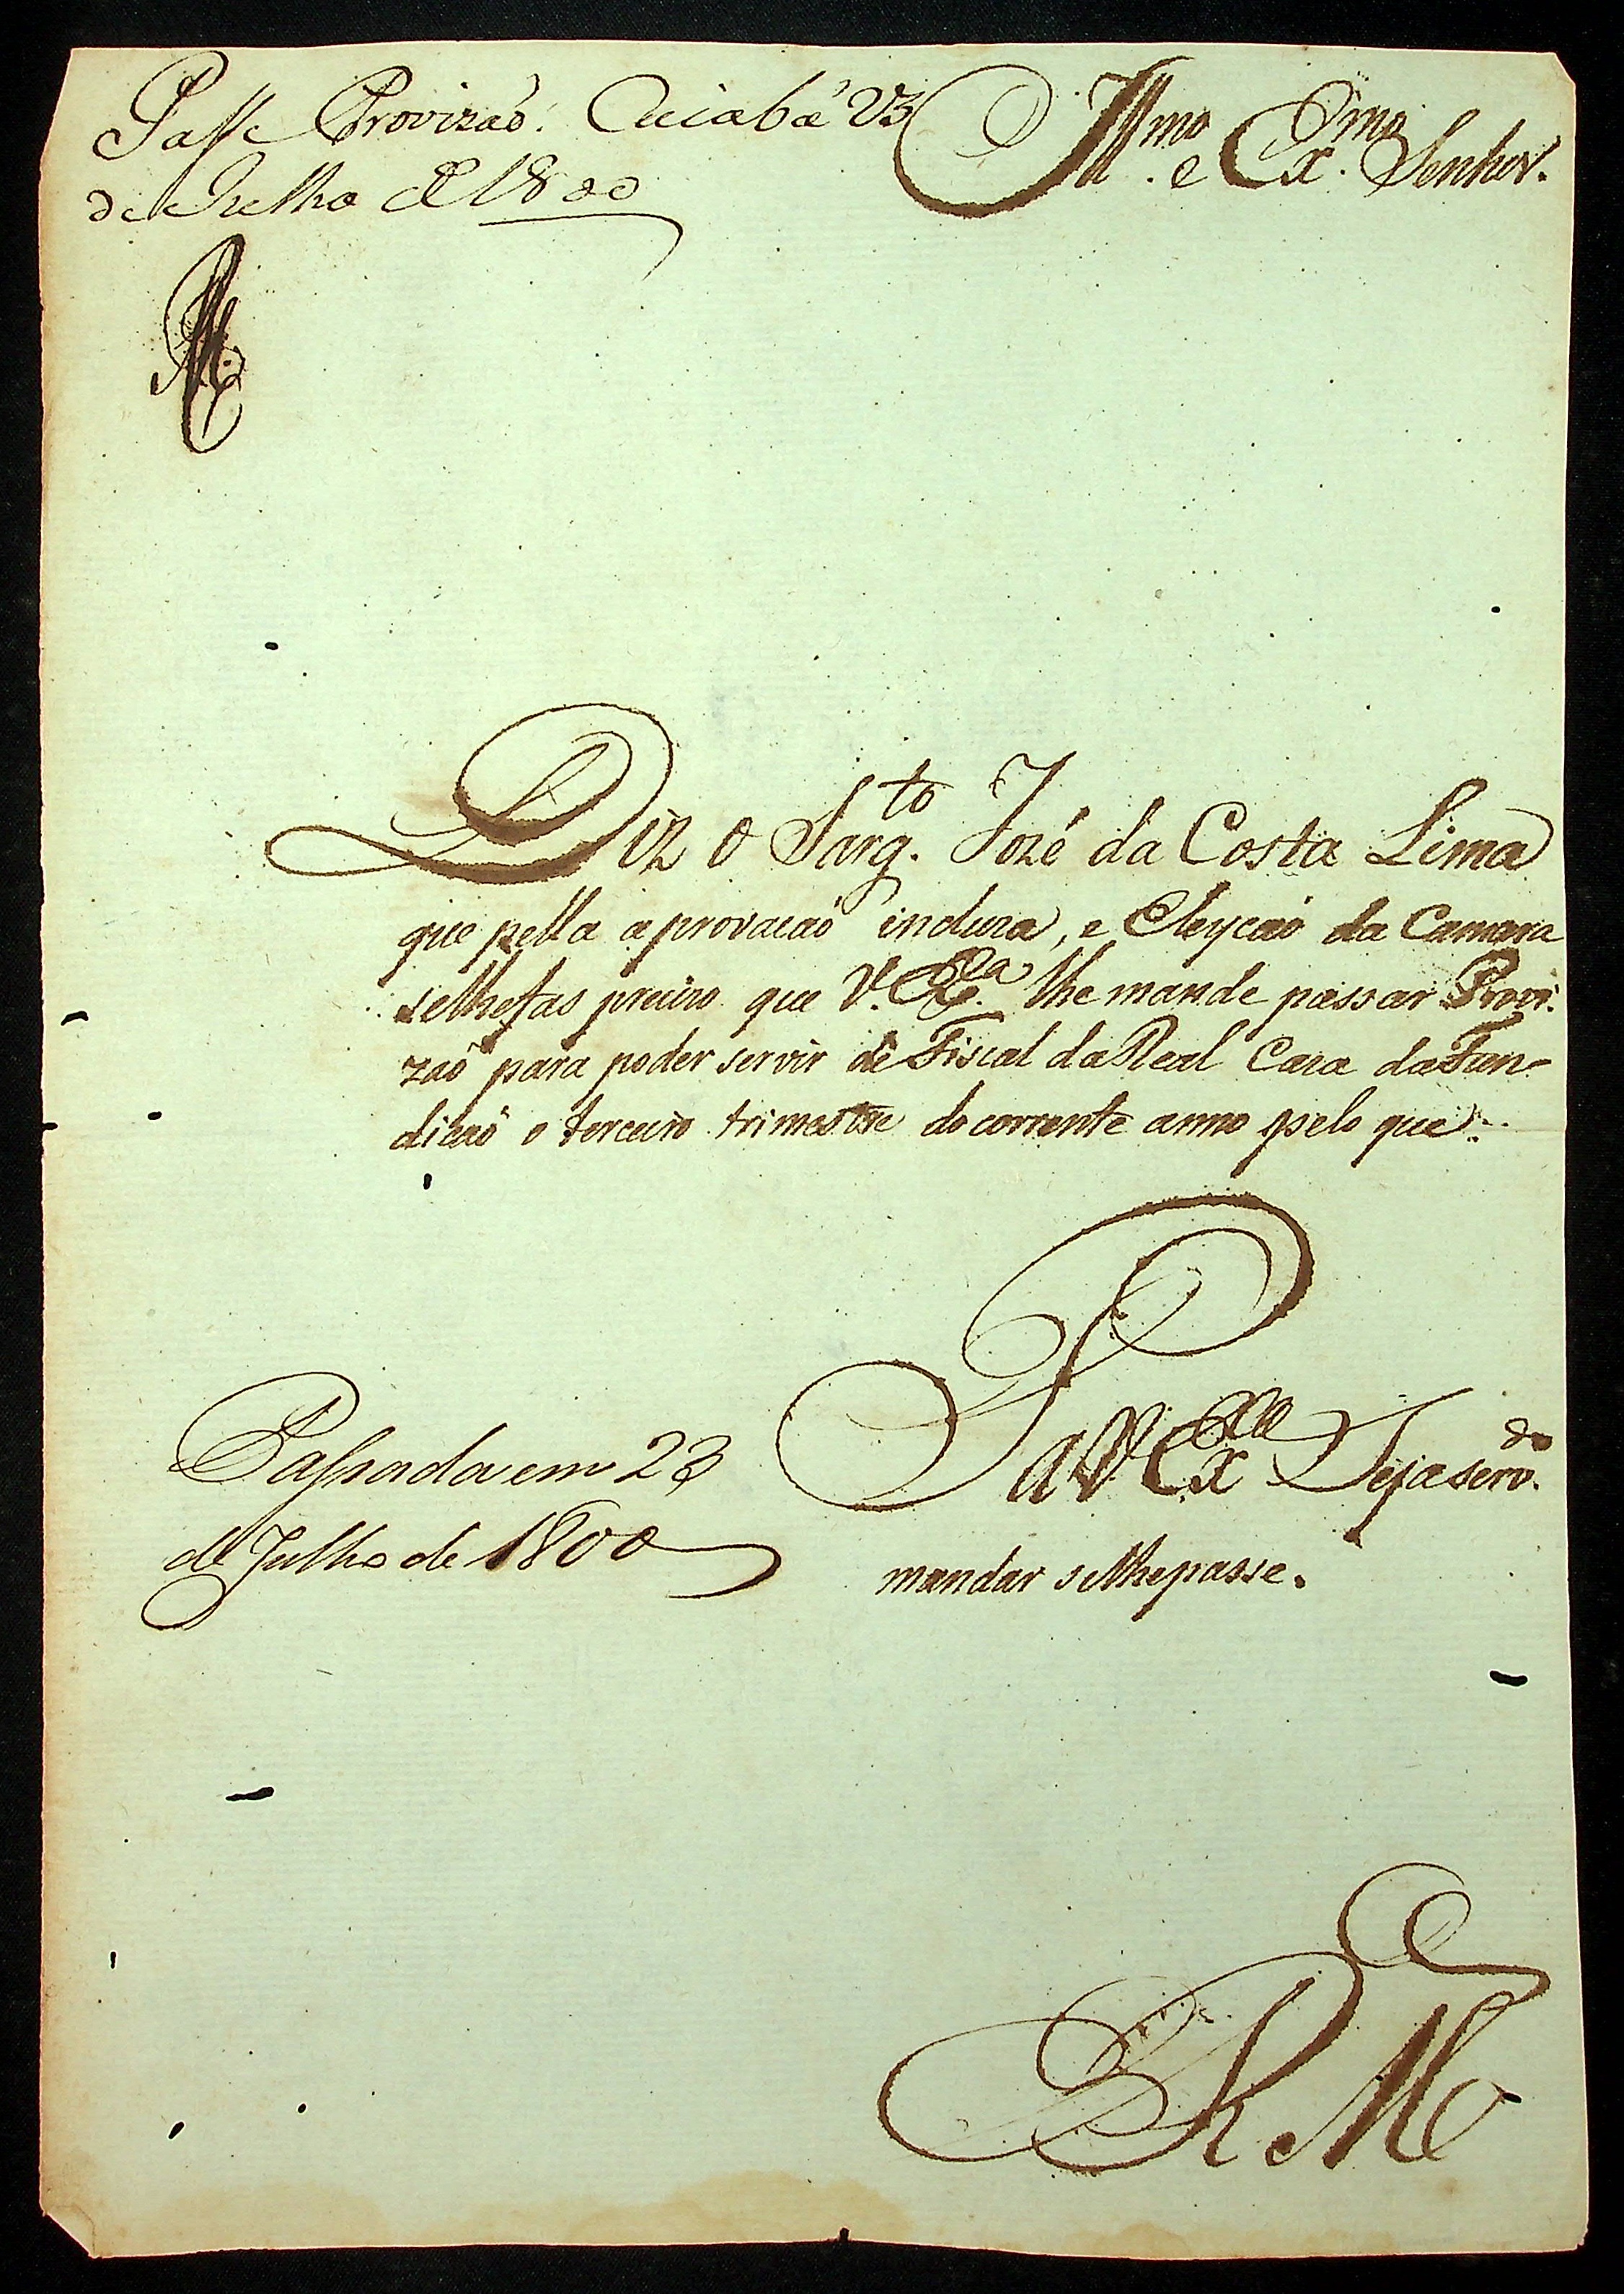 Passe Provizaõ. Cuiabá 23
de Julho de 1800
Ill.mo e Ex.mo Senhor.
Diz o Sarg.to Jozé da Costa Lima
que pella aprovacaõ incluza, e Eleycaõ da Camara
selhefas precizo que V. Ex.a lhe mande passar Provi-
zaõ para poder servir de Fiscal da Real Caza da Fun-
dicaõ o terceiro trimestre do corrente anno pelo que.
P a V. Ex.ª Seja servº.do
mandar selhepasse.
Passada em 23
de Julho de 1800
E R M